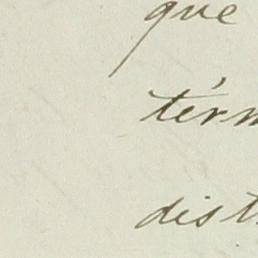 que
térm
dist